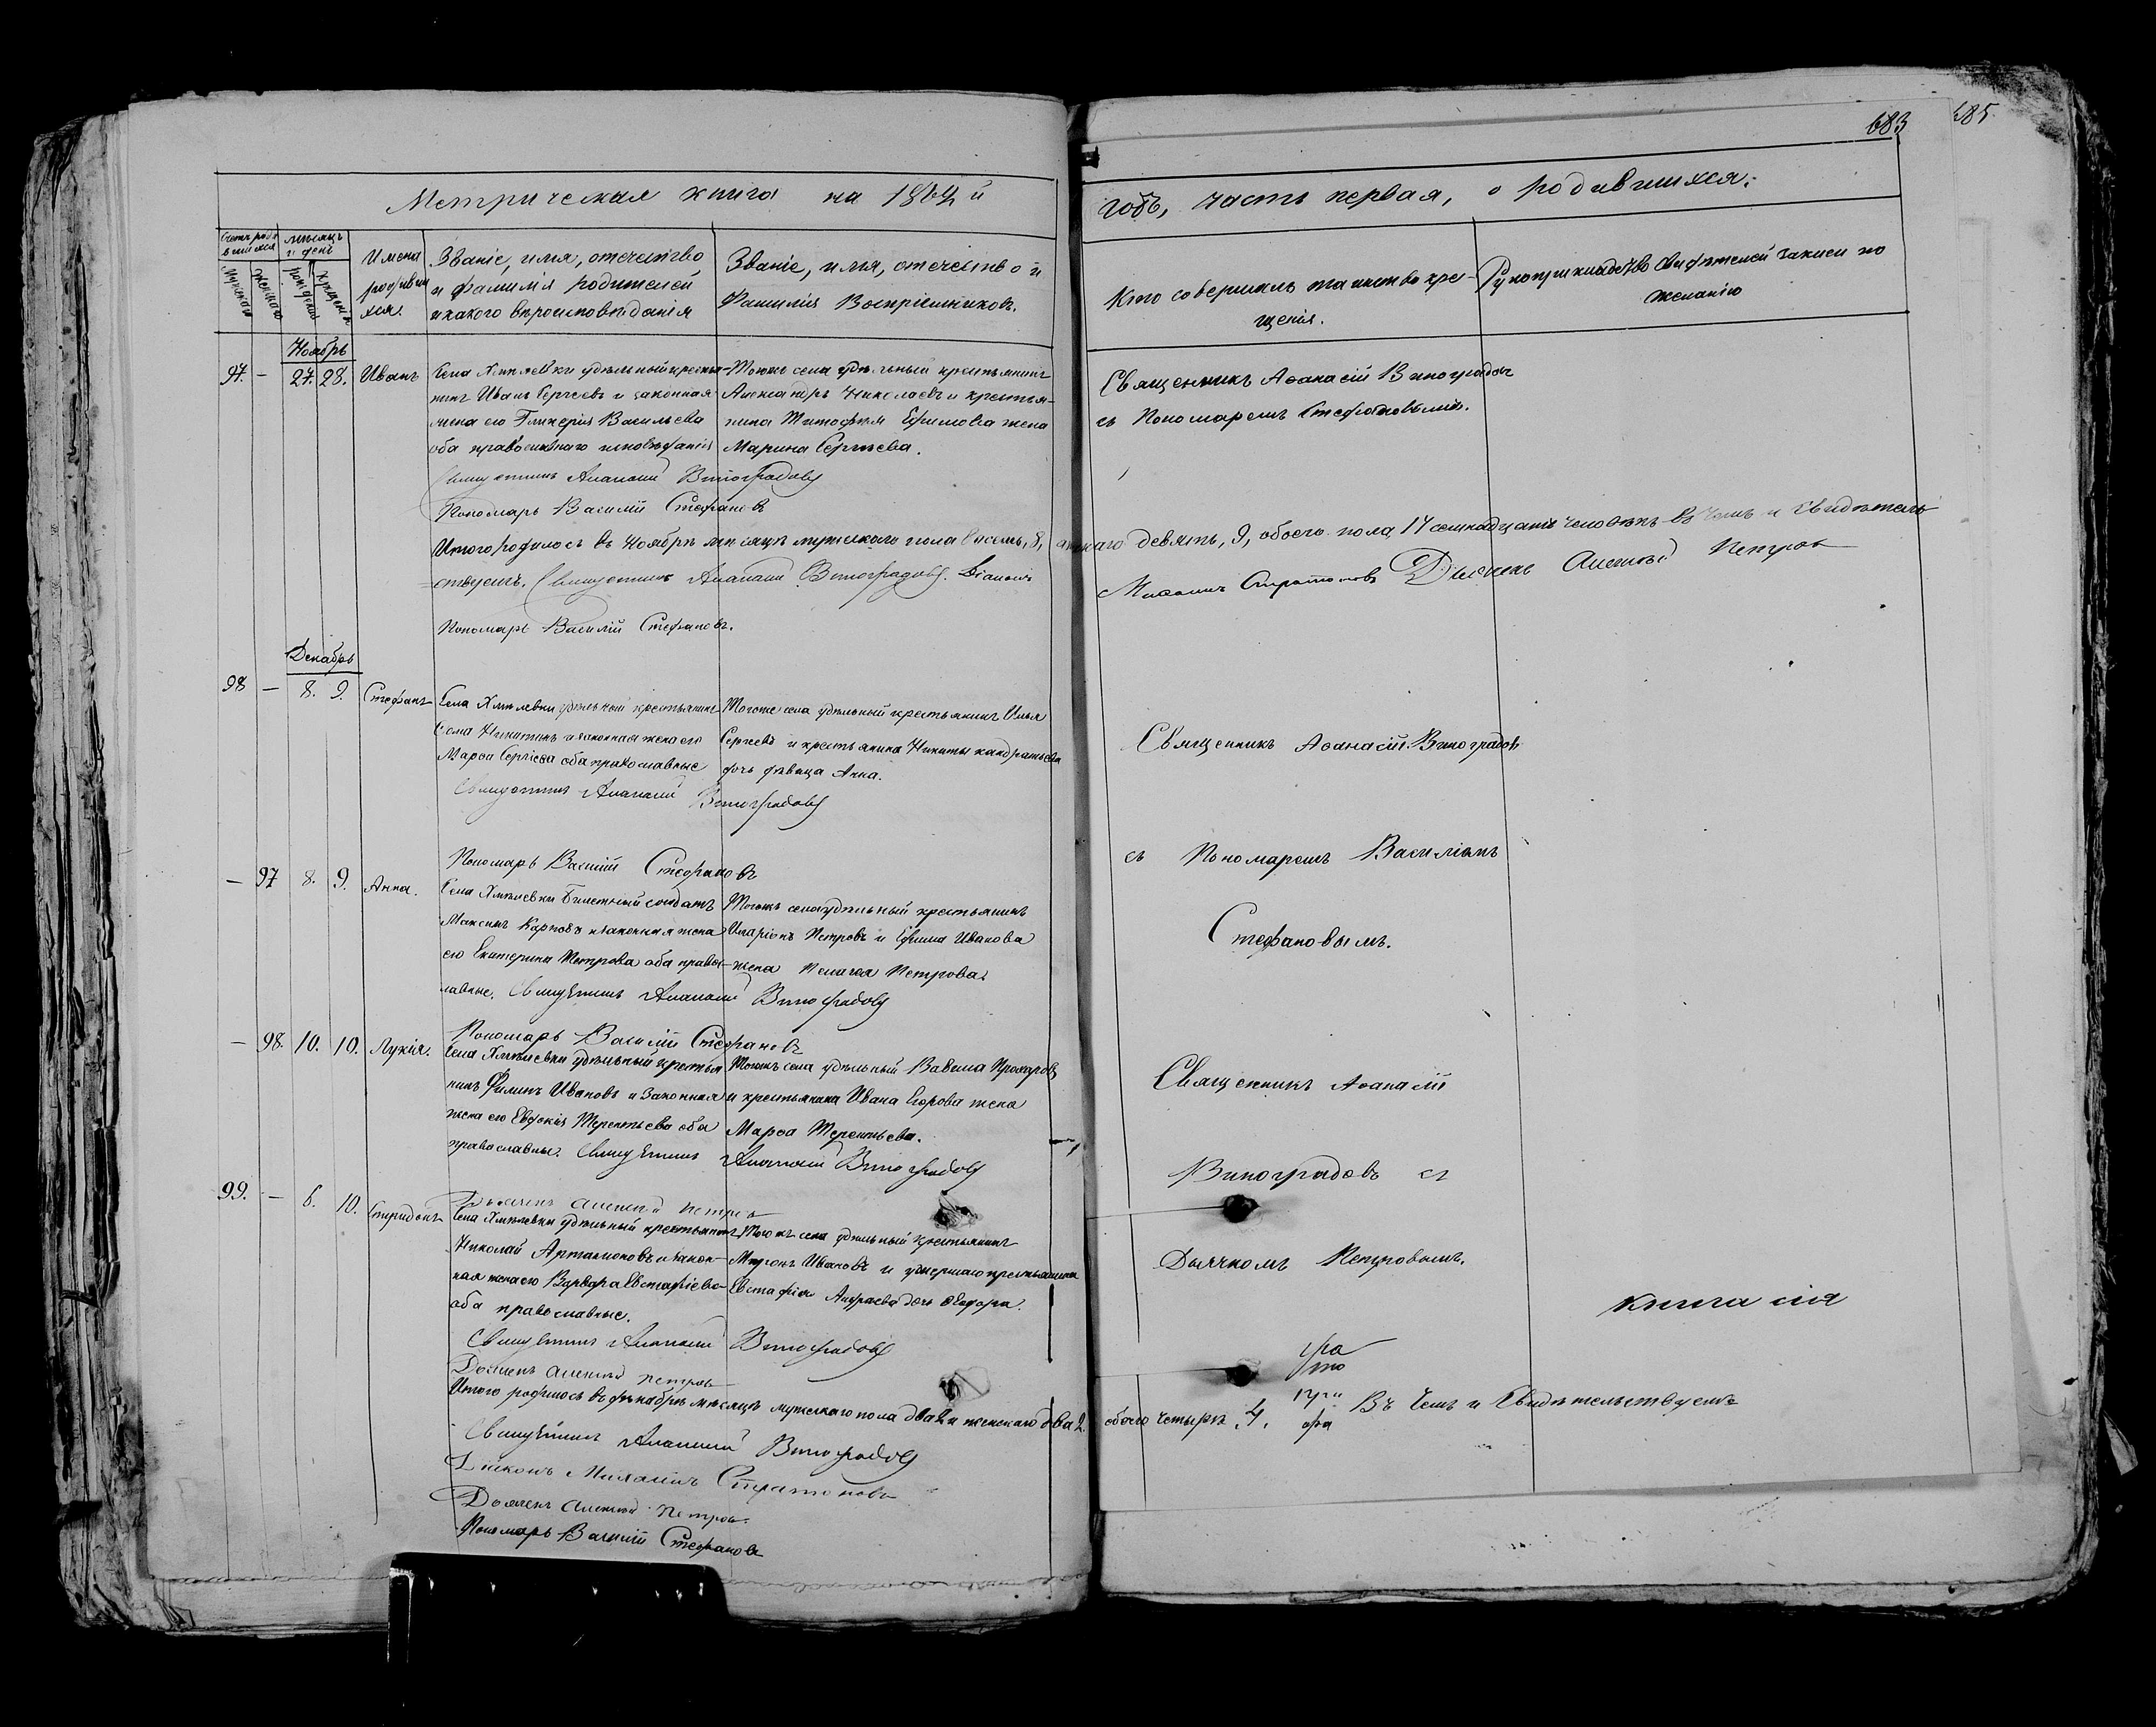 683
685.
Метрическая книга на 1864 й
годъ, часть первая, о родившихся.
Счетъ роди
вшихся
мѣсяцъ
и день
Мужеска
Женска
рожденія
крещенія
Имена
родивши
хся.
Званіе, имя, отечество
и фамилія родителей
и какого вѣроисповѣданія
Званіе, имя, отечество и
Фамилія Воспріемниковъ.
Кто совершалъ таинство кре-
щенія.
Рукоприкладство свидѣтелей записи по
желанію
Ноябрь
97. — 27. 28. Иванъ
Села Хмѣлевки удѣльный крестья-
нинъ Иванъ Сергѣевъ и законная
жена его Гликерія Васильева
оба православнаго исповѣданія
Тогожъ села удѣльный крестьянинъ
Александръ Николаевъ и крестья-
нина Тимофея Ефимова жена
Марина Сергѣева.
Священникъ Аѳанасій Виноградовъ
съ Пономаремъ Стефановымъ.
Священникъ Аѳанасій Виноградовъ
Пономарь Василій Стефановъ
Итого родилось въ Ноябрѣ мѣсяцѣ мужескаго пола восемь, 8, женскаго девять, 9, обоего пола 17 семнадцать человѣкъ въ чемъ и свидѣтель
ствуемъ. Священникъ Аѳанасій Виноградовъ. Діаконъ Михаилъ Стратоновъ Дьячекъ Алексѣй Петровъ
Пономарь Василій Стефановъ.
Декабрь
98 — 8. 9. Стефанъ
Села Хмѣлевки удѣльный крестьянинъ
Сома Никитинъ и законная жена его
Марѳа Сергіева оба православные
Тогоже села удѣльный крестьянинъ Илья
Сергѣевъ и крестьянина Никиты Кандратьева
дочь дѣвица Анна.
Священникъ Аѳанасій Виноградовъ
Священникъ Аѳанасій Виноградовъ
Пономарь Василій Стефановъ
съ Пономаремъ Василіемъ
— 97 8. 9. Анна.
Села Хмѣлевки Билетный солдатъ
Максимъ Карповъ и законная жена
его Екатерина Петрова оба право-
славные.
Тогожъ села удѣльный крестьянинъ
Иларіонъ Петровъ и Ефима Иванова
жена Пелагея Петрова.
Стефановымъ.
Священникъ Аѳанасій Виноградовъ
Пономарь Василій Стефановъ
— 98. 10. 10. Лукія.
Села Хмѣлевки удѣльный крестья
нинъ Филипъ Ивановъ и законная
жена его Евдокія Терентьева оба
православные.
Тогожъ села удѣльный Вавила Прохоровъ
и крестьянина Ивана Егорова жена
Марѳа Терентьева.
Священникъ Аѳанасій
Священникъ Аѳанасій Виноградовъ
Виноградовъ съ
Дьячекъ Алексѣй Петровъ
99. — 6. 10. Спиридонъ
Села Хмѣлевки удѣльный крестьянинъ
Николай Артамоновъ и закон-
ная жена его Варвара Евстафіева
оба православные.
Тогожъ села удѣльный крестьянинъ
Миронъ Ивановъ и умершаго крестьянина
Евстафія Андреева дочь Ѳедора.
Дьячкомъ Петровымъ.
книга сія
Священникъ Аѳанасій Виноградовъ
Дьячекъ Алексѣй Петровъ
Итого родилось въ декабрѣ мѣсяцѣ мужескаго пола два 2 и женскаго два 2. обоего четыре 4. Въ чемъ и свидѣтельствуемъ
Священникъ Аѳанасій Виноградовъ
Діаконъ Михаилъ Стратоновъ
Дьячекъ Алексѣй Петровъ.
Пономарь Василій Стефановъ